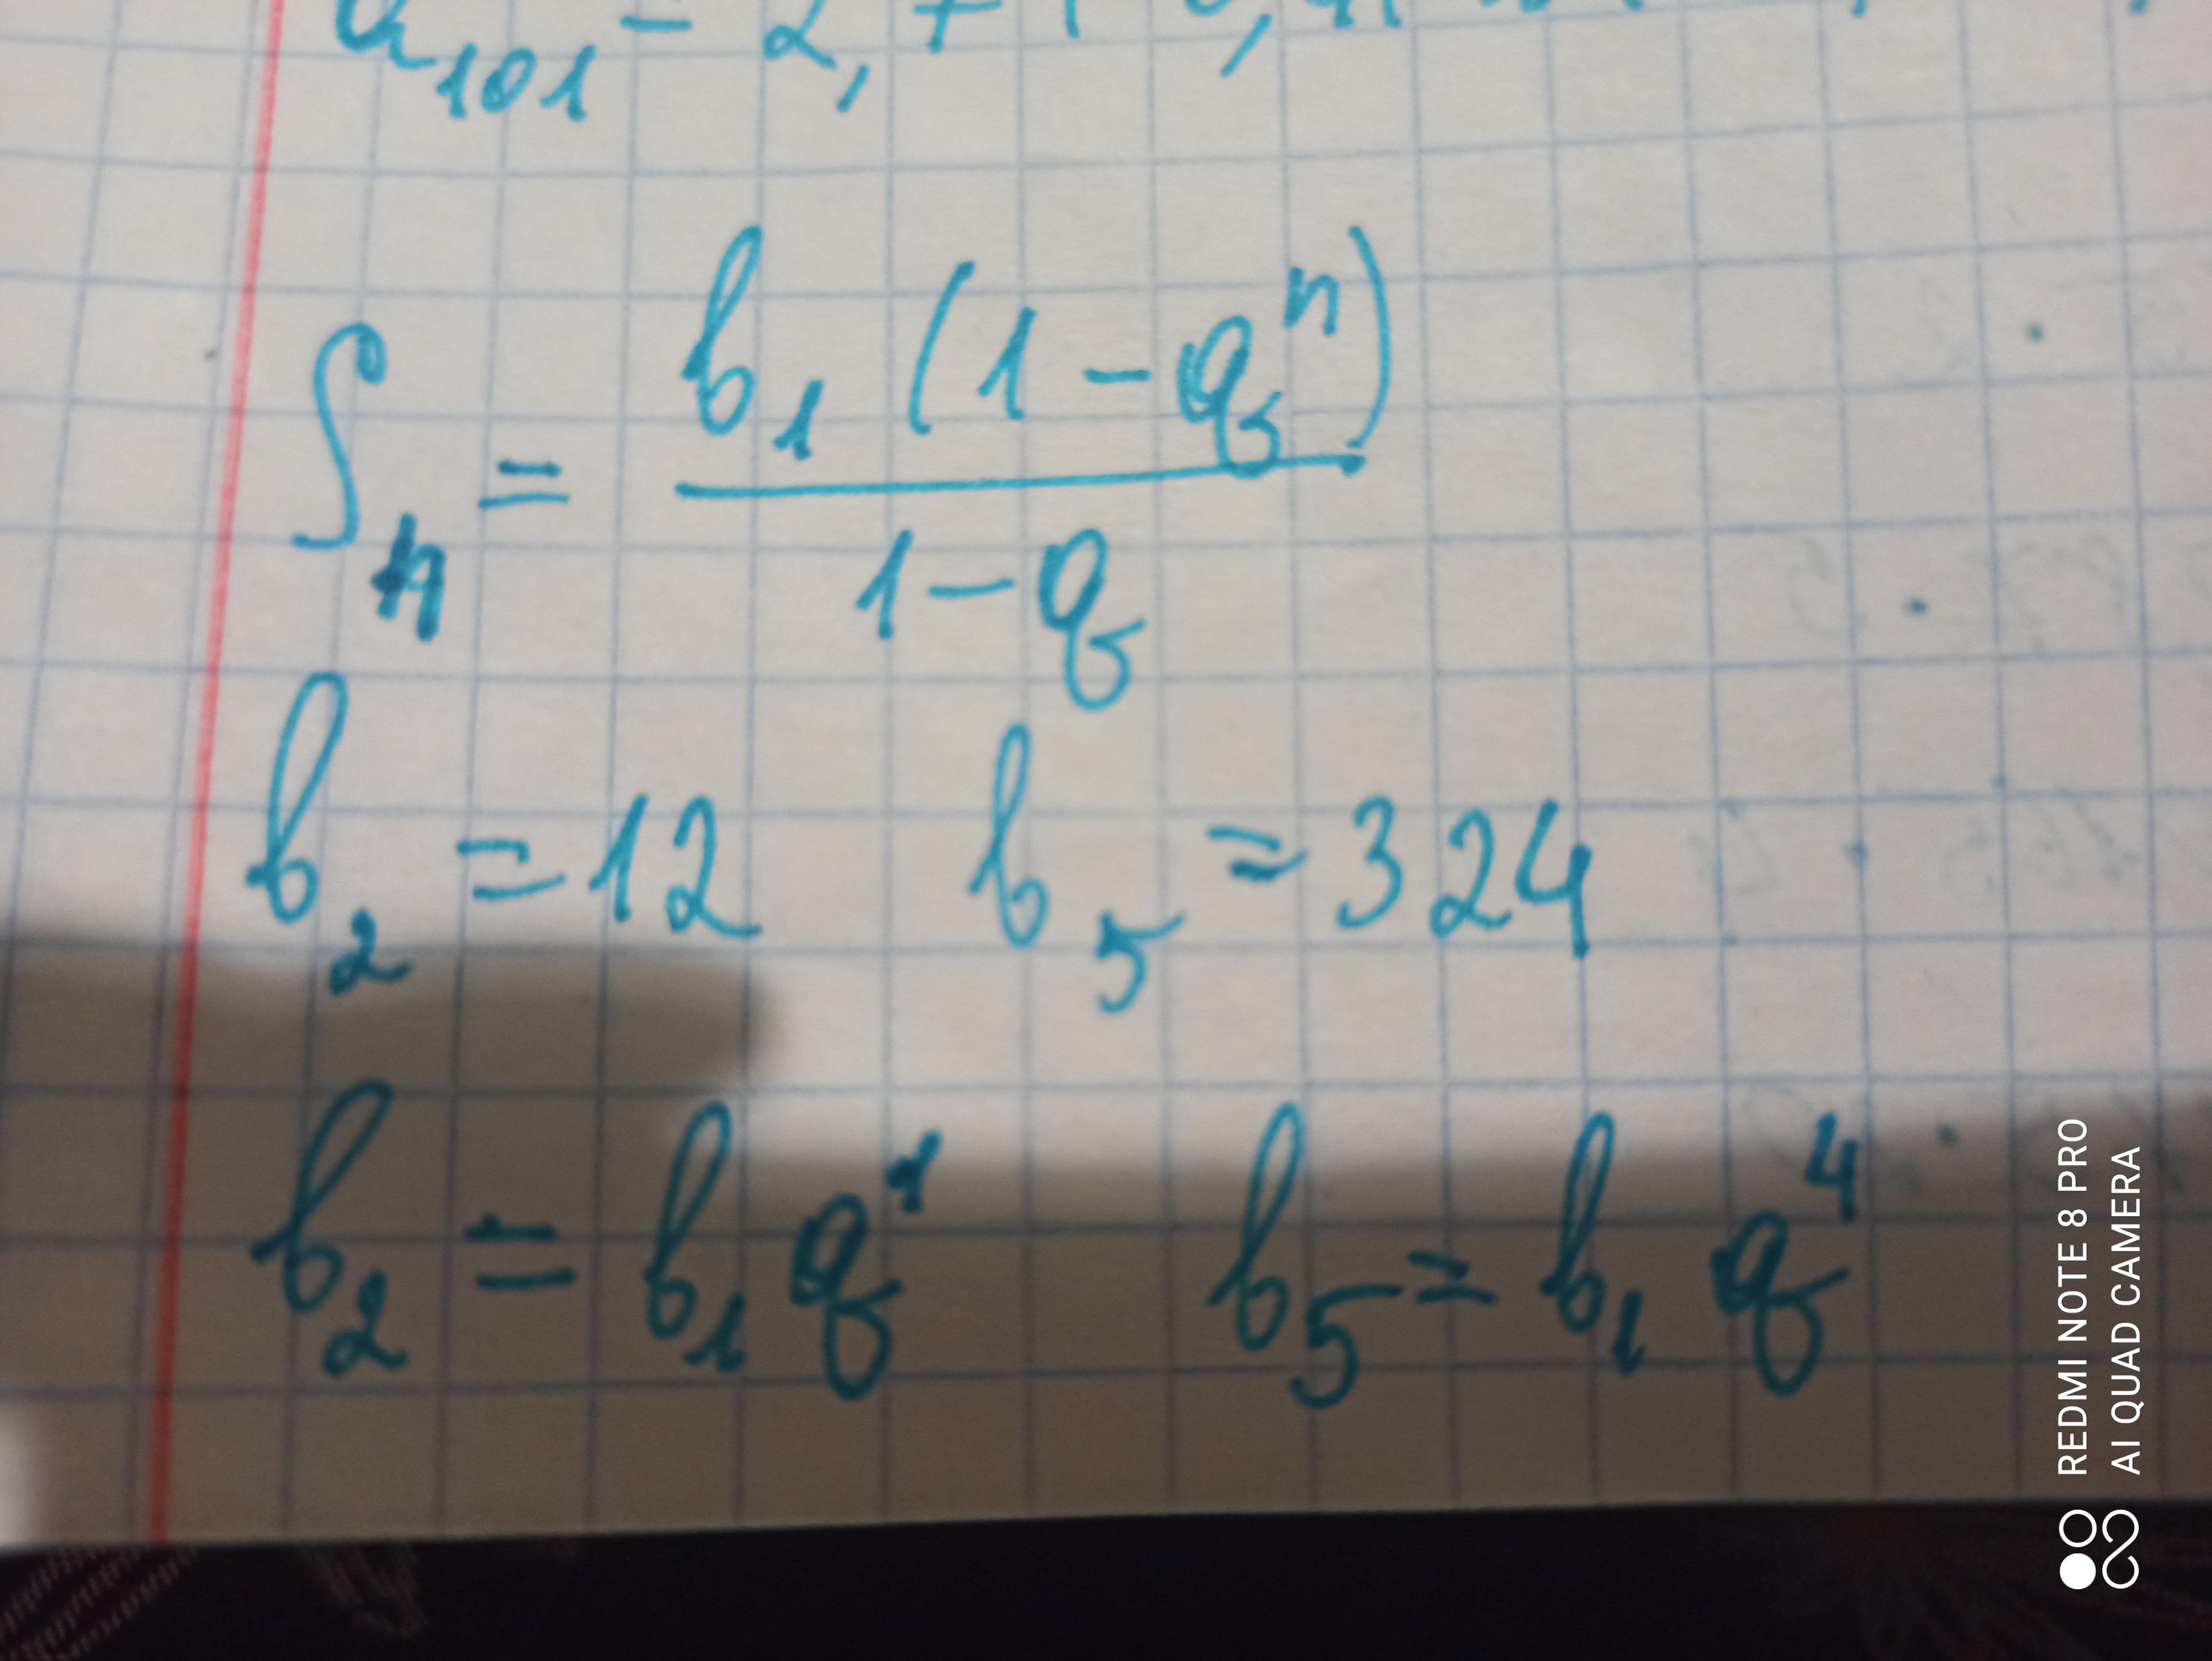 a₁₀₁ = 2,
Sₙ = b₁ (1 - qⁿ) / 1 - q
b₂ = 12 b₅ = 324
b₂ = b₁ q¹ b₅ = b₁ q⁴
REDMI NOTE 8 PRO
AI QUAD CAMERA